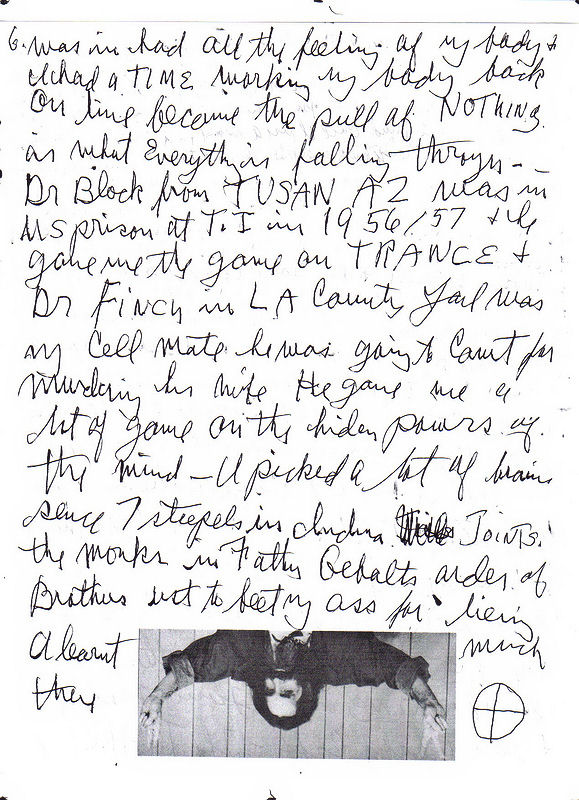 6. was in had all the feeling of my body &
I had a TIME working my body back
On line because the pull of NOTHING
is what Everything is falling through -
Dr Block from TUSAN AZ was in
US prison at T.I in 1956/57 & he
gave me the game on TRANCE &
Dr FINCH in LA County Jail was
my Cell mate he was going to Court for
Murdering his wife He gave me a
lot of game on the hiden powers of
the mind - I picked a lot of brains
sence 7 steepels in Indiana JOINTS.
the monks in Father Gebalts order of
Brothers ust to beet my ass for lieing
I learnt much
there